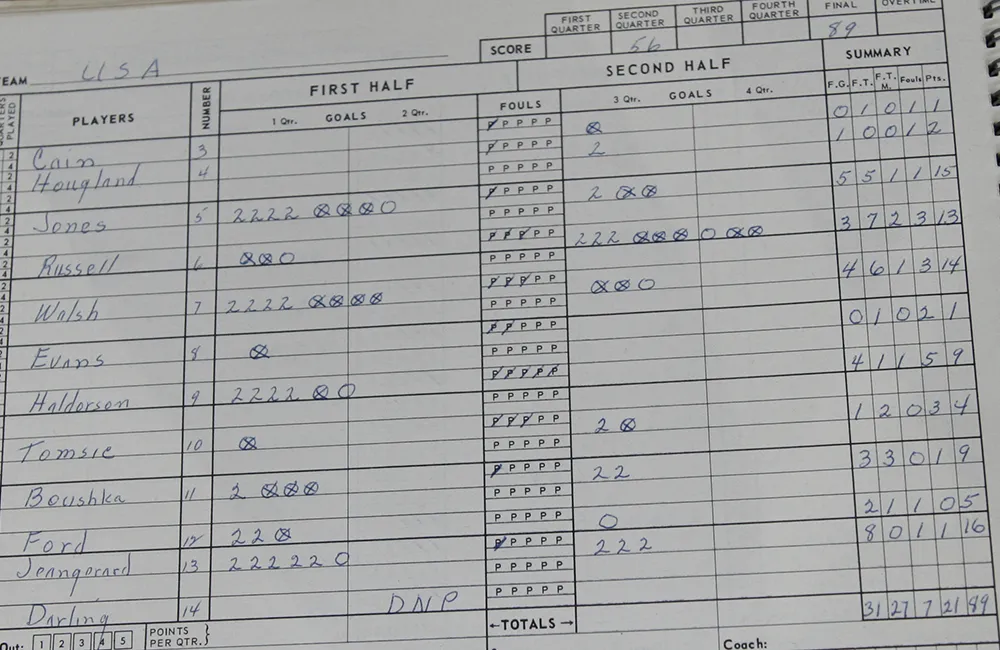 FIRST QUARTER SECOND QUARTER THIRD QUARTER FOURTH QUARTER FINAL OVERTIME
SCORE 56 89
TEAM USA
FIRST HALF SECOND HALF SUMMARY
QUARTERS PLAYED PLAYERS NUMBER 1 Qtr. GOALS 2 Qtr. FOULS 3 Qtr. GOALS 4 Qtr. F.G. F.T. F.T. M. Fouls Pts.
Cain 3 P P P P P ⊗ 0 1 0 1 1
Hougland 4 P P P P P 2 1 0 0 1 2
Jones 5 2 2 2 2 ⊗ ⊗ ⊗ O P P P P P 2 ⊗ ⊗ 5 5 1 1 15
Russell 6 ⊗ ⊗ O P P P P P 2 2 2 ⊗ ⊗ ⊗ O ⊗ ⊗ 3 7 2 3 13
Walsh 7 2 2 2 2 ⊗ ⊗ ⊗ ⊗ P P P P P ⊗ ⊗ O 4 6 1 3 14
Evans 8 ⊗ P P P P P 0 1 0 2 1
Haldorson 9 2 2 2 2 ⊗ O P P P P P 4 1 1 5 9
Tomsic 10 ⊗ P P P P P 2 ⊗ 1 2 0 3 4
Boushka 11 2 ⊗ ⊗ ⊗ P P P P P 2 2 3 3 0 1 9
Ford 12 2 2 ⊗ P P P P P O 2 1 1 0 5
Jeangerard 13 2 2 2 2 2 O P P P P P 2 2 2 8 0 1 1 16
Darling 14 DNP P P P P P
←TOTALS→ 31 27 7 21 89
Out: 1 2 3 4 5 POINTS PER QTR. Coach: